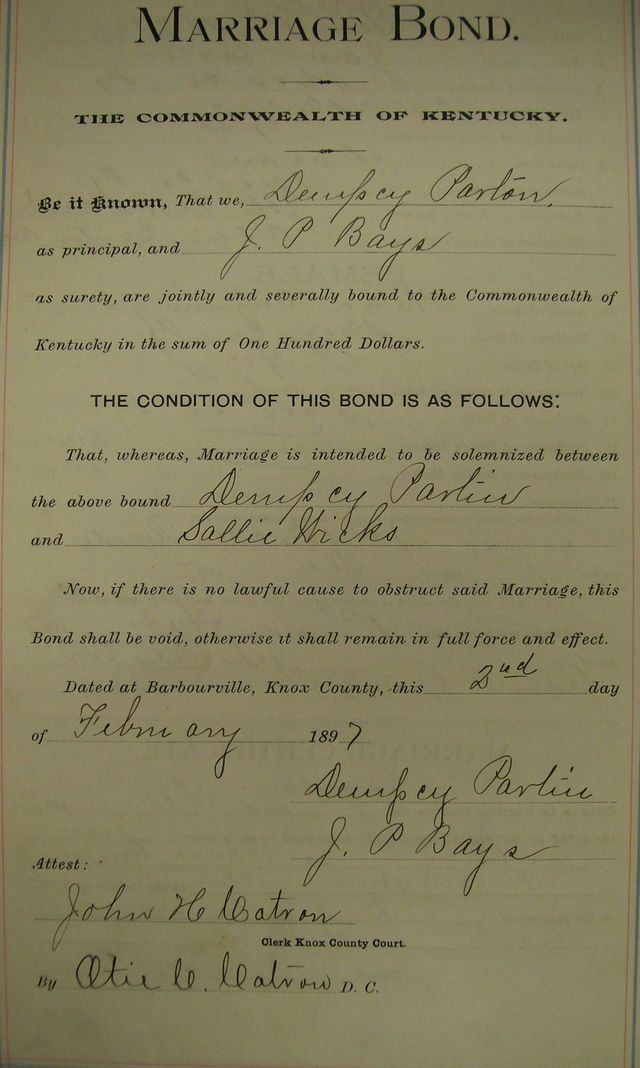 MARRIAGE BOND.
THE COMMONWEALTH OF KENTUCKY.
Be it Known, That we, Dempsey Parton,
as principal, and J. P Bays
as surety, are jointly and severally bound to the Commonwealth of
Kentucky in the sum of One Hundred Dollars.
THE CONDITION OF THIS BOND IS AS FOLLOWS:
That, whereas, Marriage is intended to be solemnized between
the above bound Dempsey Partin
and Sallie Hicks
Now, if there is no lawful cause to obstruct said Marriage, this
Bond shall be void, otherwise it shall remain in full force and effect.
Dated at Barbourville, Knox County, this 2nd day
of February 1897
Dempsey Partin
J. P Bays
Attest:
John H Catron
Clerk Knox County Court.
By Otie C. Catron D. C.